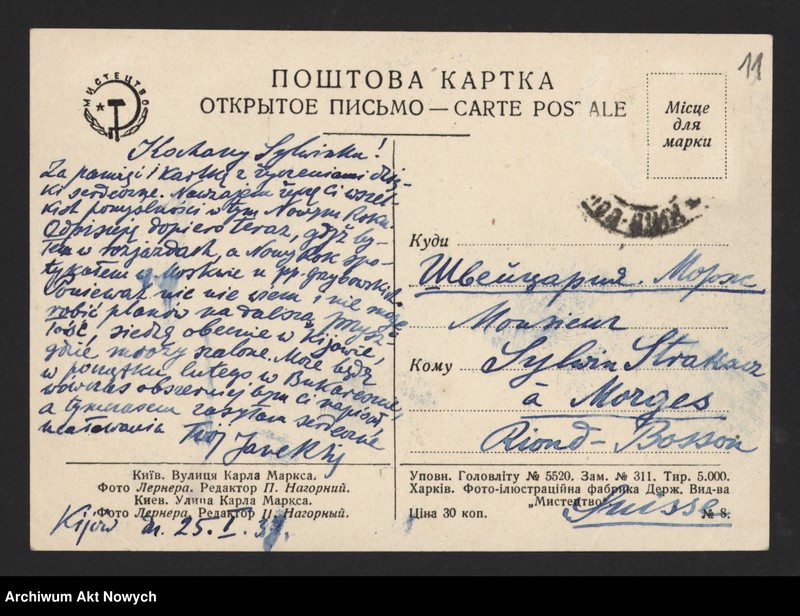 11
МИСТЕЦТВО
ПОШТОВА КАРТКА
ОТКРЫТОЕ ПИСЬМО — CARTE POSTALE
Місце
для
марки
Kochany Sylwinku!
Za pamięć i kartkę z życzeniami dzię-
ki serdeczne. Nawzajem życzę Ci wszel-
kich pomyślności w tym Nowym Roku.
Odpisuję dopiero teraz, gdyż by-
łem w rozjazdach, a Nowy Rok spo-
tykałem w Moskwie u pp. Grzybowskich
Ponieważ nic nie wiem i nie mogę
robić planów na dalszą przysz-
łość, siedzę obecnie w Kijowie,
gdzie mrozy szalone. Może będę
w początku lutego w Bukareszcie,
wówczas obszerniej bym Ci napisał,
a tymczasem zasyłam serdeczne
ucałowania Twój
Куди
Швейцария. Морж
Monsieur
Кому
Sylwin Strakacz
à Morges
Riond-Bosson
Suisse
Київ. Вулиця Карла Маркса.
Фото Лернера. Редактор П. Нагорний.
Киев. Улица Карла Маркса.
Фото Лернера. Редактор П. Нагорный.
Kijów d. 25.I.37.
Уповн. Головліту № 5520. Зам. № 311. Тир. 5.000.
Харків. Фото-ілюстраційна фабрика Держ. Вид-ва
„Мистецтво"
Ціна 30 коп.
№ 8.
Archiwum Akt Nowych